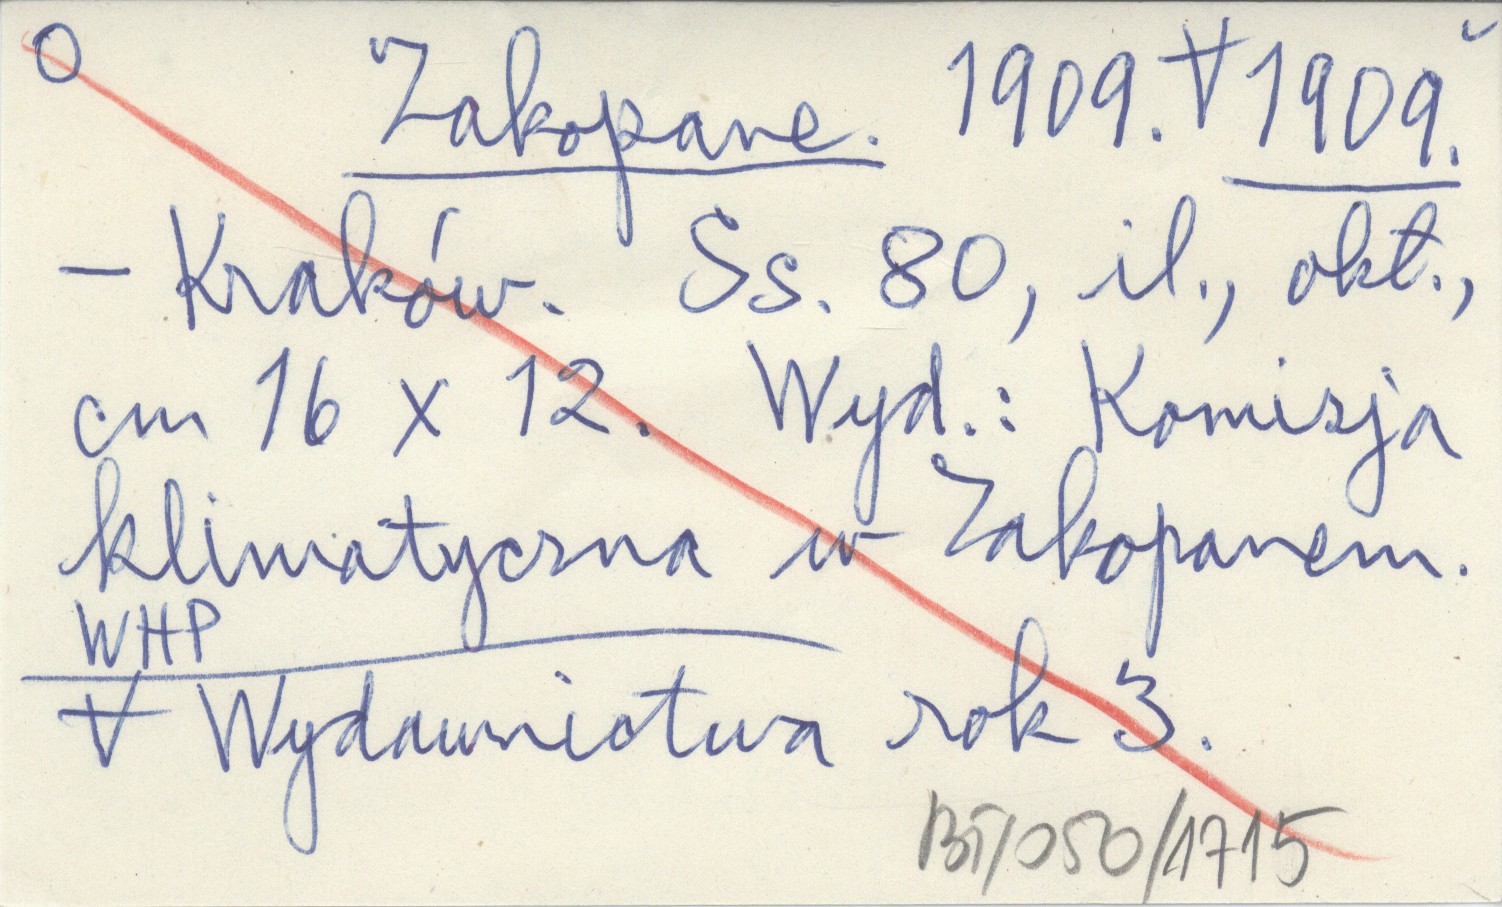 O Zakopane. 1909. V 1909.
– Kraków. Ss. 80, il., okł.,
cm 16 x 12. Wyd.: Komisja
klimatyczna w Zakopanem.
WHP
V Wydawnictwa rok 3.
BT/050/1715